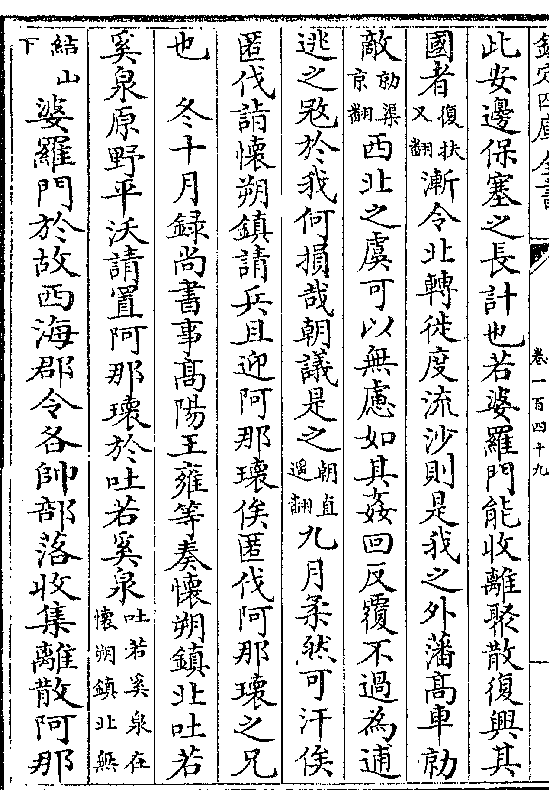 欽定四庫全書
卷一百四十九
此安邊保塞之長計也若婆羅門能收離聚散復興其
國者復扶又翻漸令北轉徙度流沙則是我之外藩髙車勍
敵勍渠京翻西北之虞可以無慮如其姦回反覆不過為逋
逃之㓂於我何損哉朝議是之朝直遥翻九月柔然可汗俟
匿伐詣懷朔鎮請兵且迎阿那瓌俟匿伐阿那瓌之兄
也　冬十月録尚書事髙陽王雍等奏懷朔鎮北吐若
奚泉原野平沃請置阿那瓌於吐若奚泉吐若奚泉在懷朔鎮北無
結山下婆羅門於故西海郡令各帥部落收集離散阿那